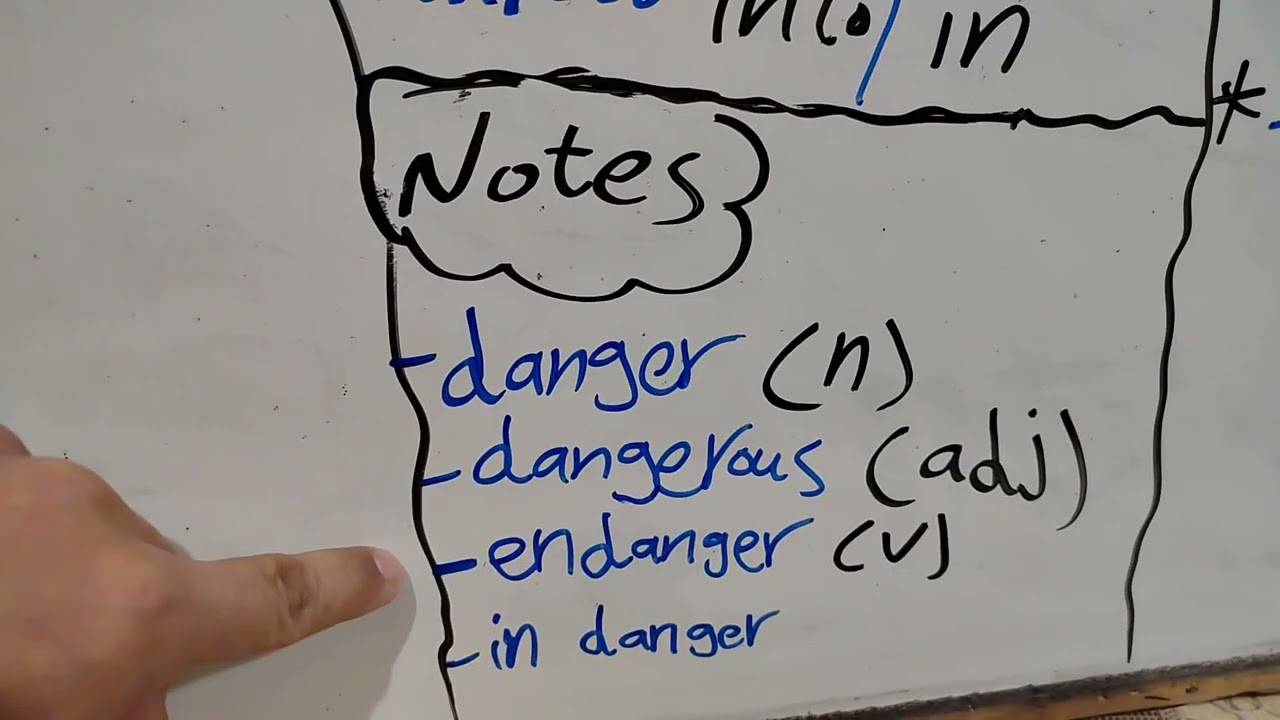 into/in
Notes
- danger (n)
- dangerous (adj)
- endanger (v)
- in danger
*